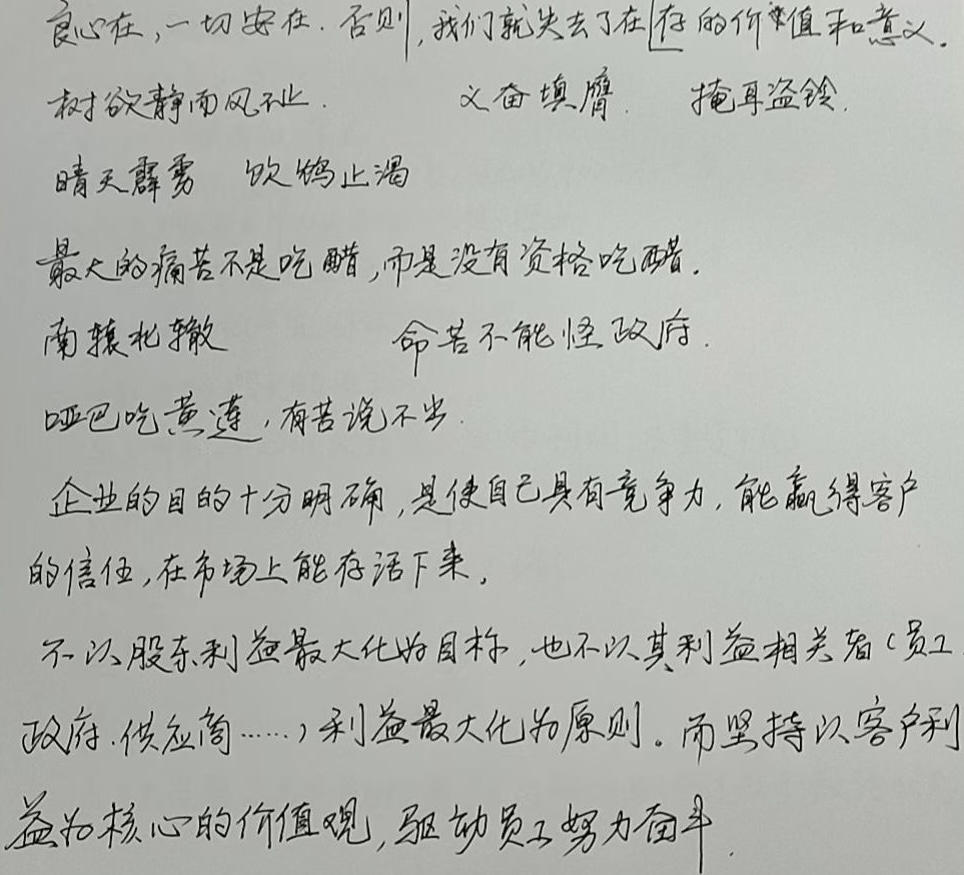 良心在,一切安在.否则,我们就失去了在存的价值和意义.
树欲静而风不止. 义奋填膺. 掩耳盗铃.
晴天霹雳 饮鸩止渴
最大的痛苦不是吃醋,而是没有资格吃醋.
南辕北辙 命苦不能怪政府.
哑巴吃黄莲,有苦说不出.
企业的目的十分明确,是使自己具有竞争力,能赢得客户
的信任,在市场上能存活下来,
不以股东利益最大化为目标,也不以其利益相关者(员工
政府.供应商……)利益最大化为原则。而坚持以客户利
益为核心的价值观,驱动员工努力奋斗.